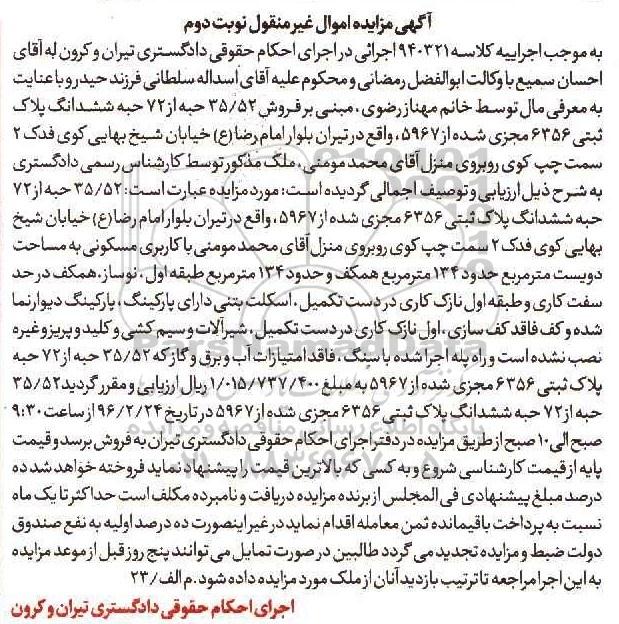 آگهی مزایده اموال غیر منقول نوبت دوم
به موجب اجراییه کلاسه ۹۴۰۳۲۱ اجرائی در اجرای احکام حقوقی دادگستری تیران و کرون له آقای
احسان سمیع با وکالت ابوالفضل رمضانی و محکوم علیه آقای اسداله سلطانی فرزند حیدر و با عنایت
به معرفی مال توسط خانم مهناز رضوی، مبنی بر فروش ۳۵/۵۲ حبه از ۷۲ حبه ششدانگ پلاک
ثبتی ۶۳۵۶ مجزی شده از ۵۹۶۷، واقع در تیران بلوار امام رضا (ع) خیابان شیخ بهایی کوی فدک ۲
سمت چپ کوی روبروی منزل آقای محمد مومنی، ملک مذکور توسط کارشناس رسمی دادگستری
به شرح ذیل ارزیابی و توصیف اجمالی گردیده است: مورد مزایده عبارت است: ۳۵/۵۲ حبه از ۷۲
حبه ششدانگ پلاک ثبتی ۶۳۵۶ مجزی شده از ۵۹۶۷، واقع در تیران بلوار امام رضا (ع) خیابان شیخ
بهایی کوی فدک ۲ سمت چپ کوی روبروی منزل آقای محمد مومنی با کاربری مسکونی به مساحت
دویست مترمربع حدود ۱۳۴ مترمربع همکف و حدود ۱۳۴ مترمربع طبقه اول، نوساز. همکف در حد
سفت کاری و طبقه اول نازک کاری در دست تکمیل. اسکلت بتنی دارای پارکینگ، پارکینگ دیوار نما
شده و کف فاقد کف سازی، اول نازک کاری در دست تکمیل، شیرآلات و سیم کشی و کلید و پریز و غیره
نصب نشده است و راه پله اجرا شده با سنگ، فاقد امتیازات آب و برق و گاز که ۳۵/۵۲ حبه از ۷۲ حبه
پلاک ثبتی ۶۳۵۶ مجزی شده از ۵۹۶۷ به مبلغ ۱/۰۱۵/۷۳۷/۴۰۰ ریال ارزیابی و مقرر گردید ۳۵/۵۲
حبه از ۷۲ حبه ششدانگ پلاک ثبتی ۶۳۵۶ مجزی شده از ۵۹۶۷ در تاریخ ۹۶/۲/۲۴ از ساعت ۹:۳۰
صبح الی ۱۰ صبح از طریق مزایده در دفتر اجرای احکام حقوقی دادگستری تیران به فروش برسد و قیمت
پایه از قیمت کارشناسی شروع و به کسی که بالاترین قیمت را پیشنهاد نماید فروخته خواهد شد ده
درصد مبلغ پیشنهادی فی المجلس از برنده مزایده دریافت و نامبرده مکلف است حداکثر تا یک ماه
نسبت به پرداخت باقیمانده ثمن معامله اقدام نماید در غیر اینصورت ده درصد اولیه به نفع صندوق
دولت ضبط و مزایده تجدید می گردد طالبین در صورت تمایل می توانند پنج روز قبل از موعد مزایده
به این اجرا مراجعه تا ترتیب بازدید آنان از ملک مورد مزایده داده شود. م الف/۲۳
اجرای احکام حقوقی دادگستری تیران و کرون